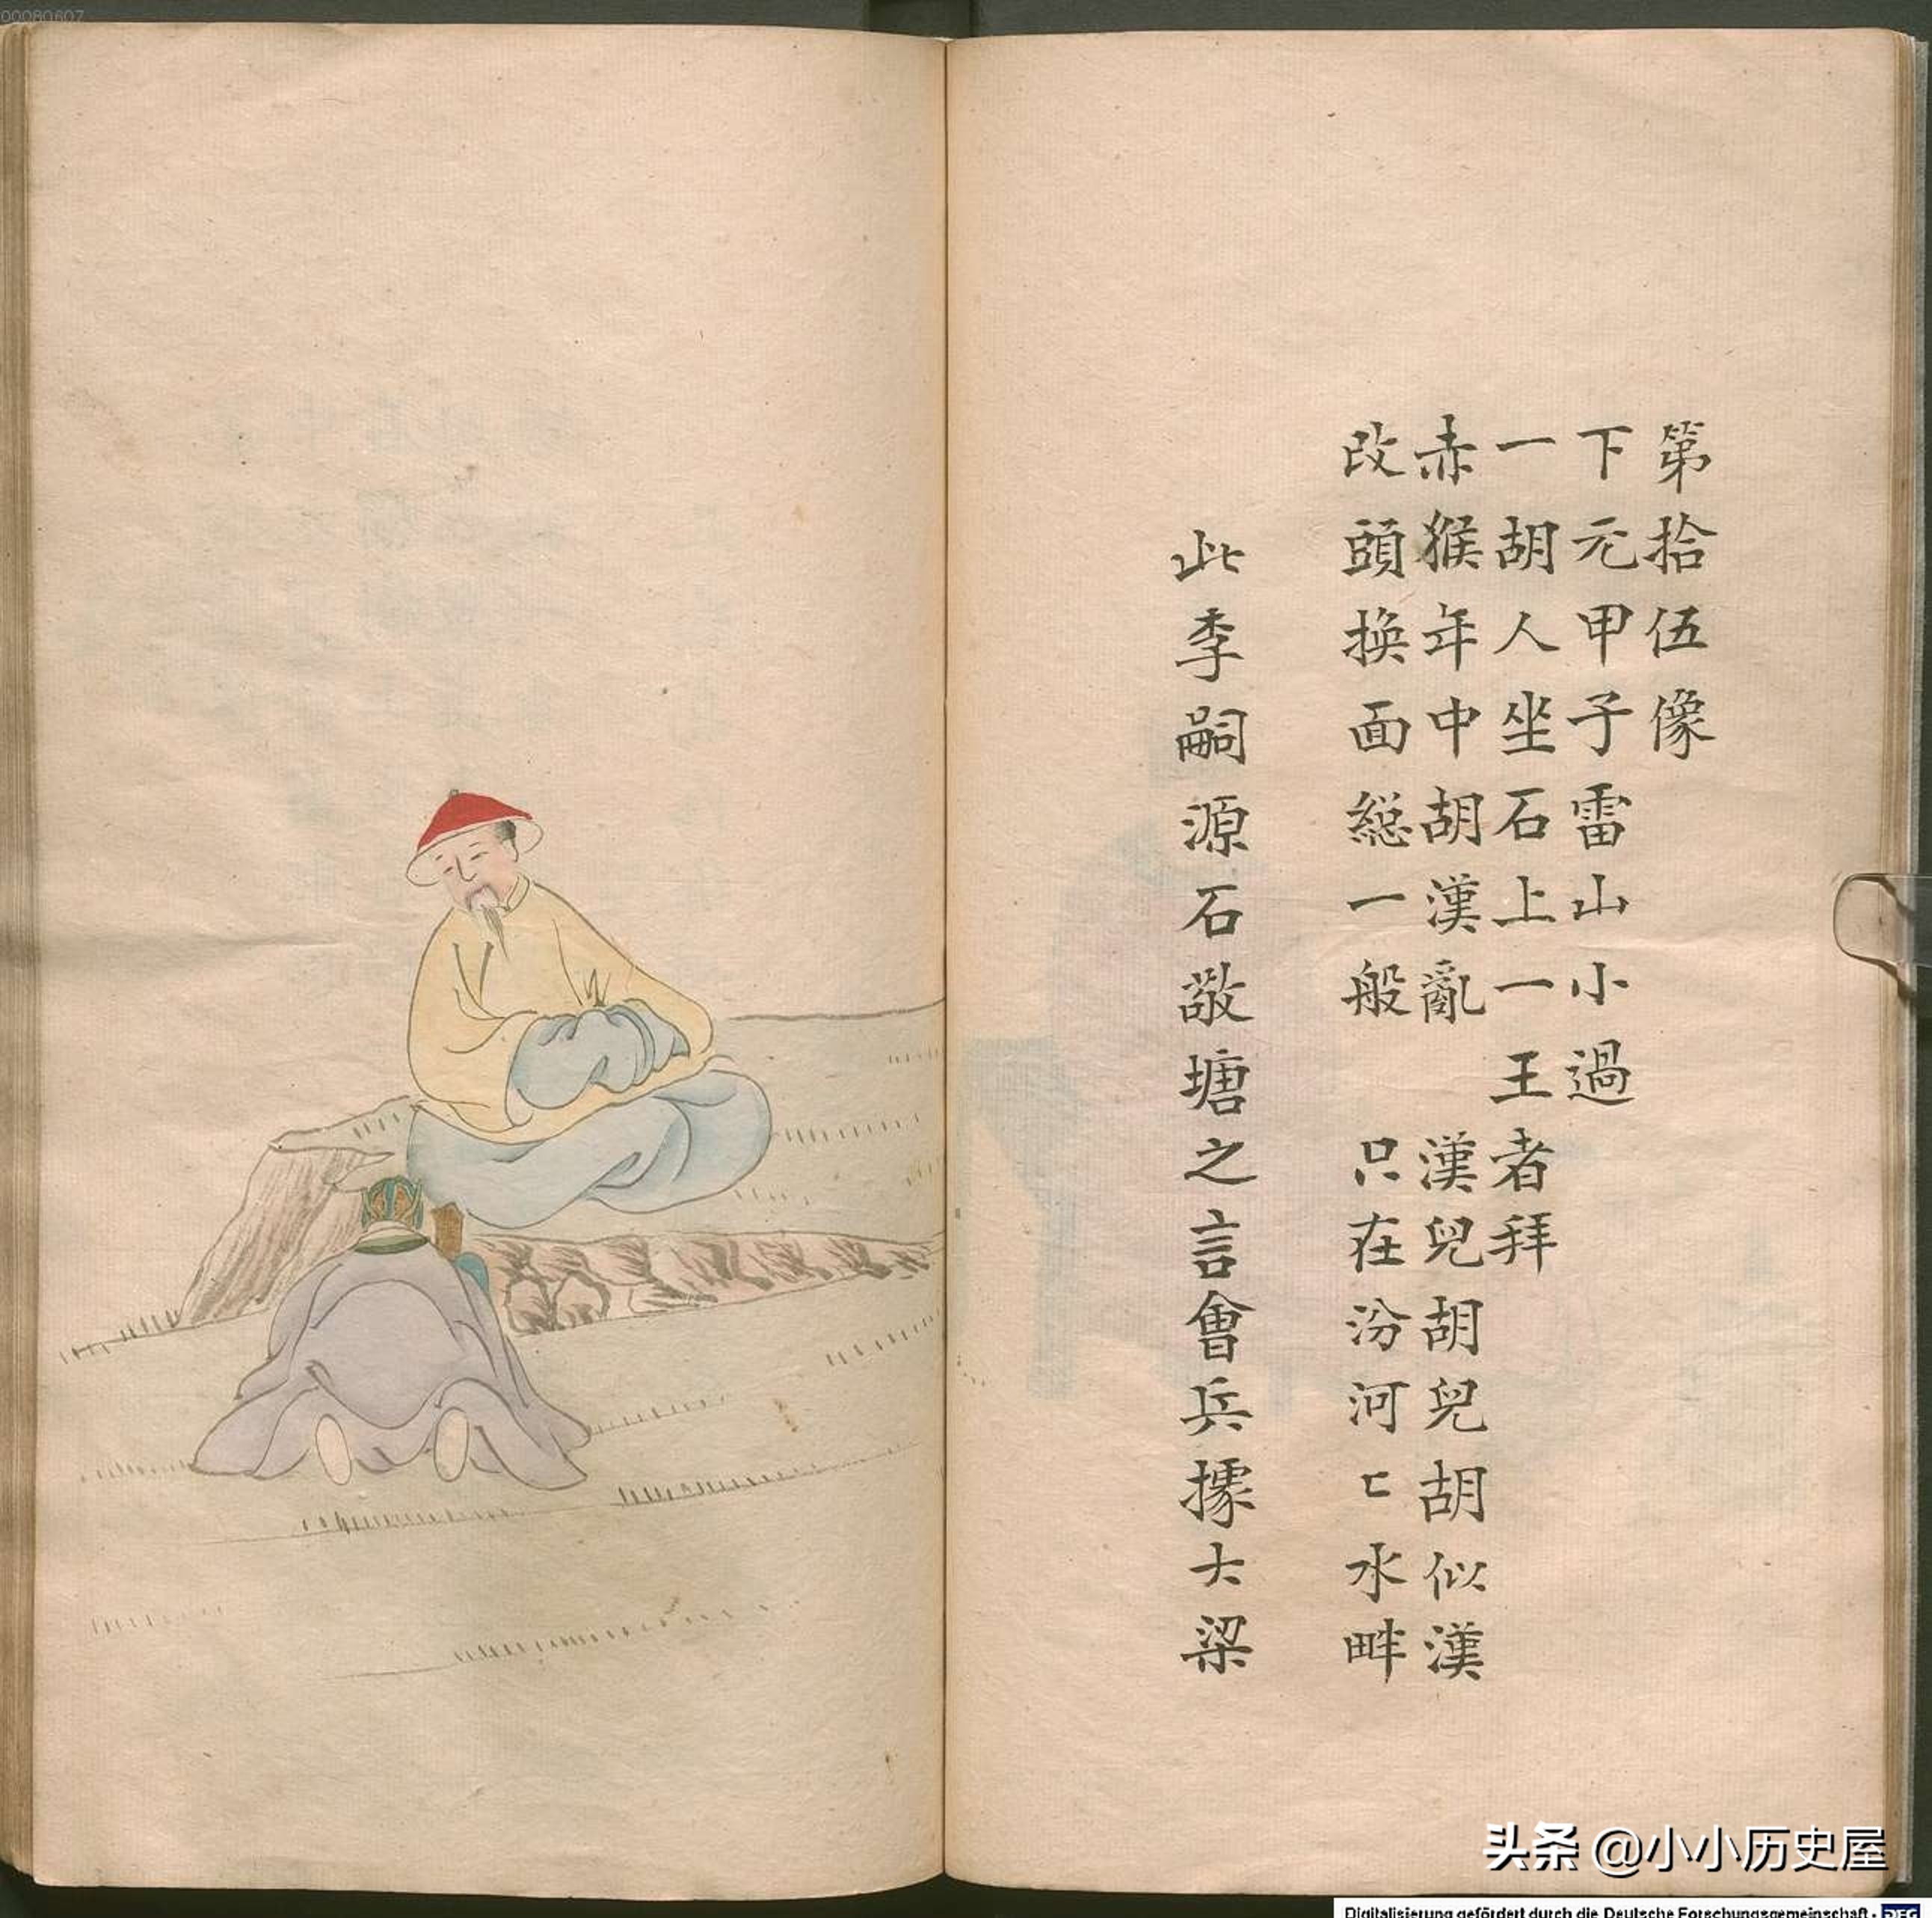 00080607
第拾伍像
下元甲子雷山小過
一胡人坐石上一王者拜
赤猴年中胡漢亂　漢兒胡兒胡似漢
改頭換面総一般　只在汾河匚水畔
此李嗣源石敬塘之言會兵據大梁
头条 @小小历史屋
Digitalisierung gefördert durch die Deutsche Forschungsgemeinschaft · DFG